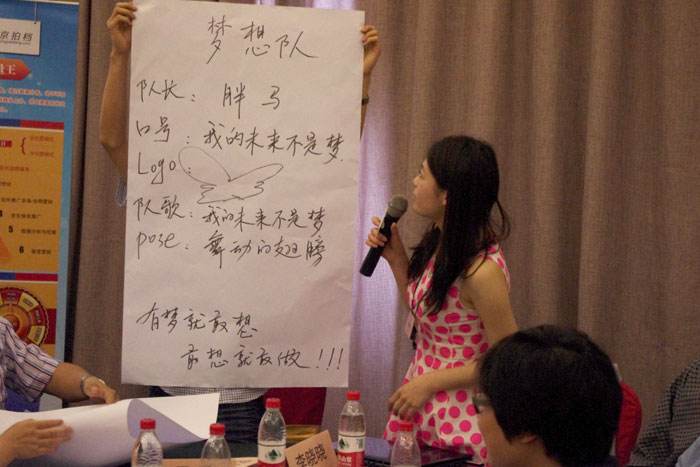 京拍档
梦想队
队长：胖马
口号：我的未来不是梦.
Logo：
队歌：我的未来不是梦
pose：舞动的翅膀
有梦就敢想
敢想就敢做!!!
李晓晓